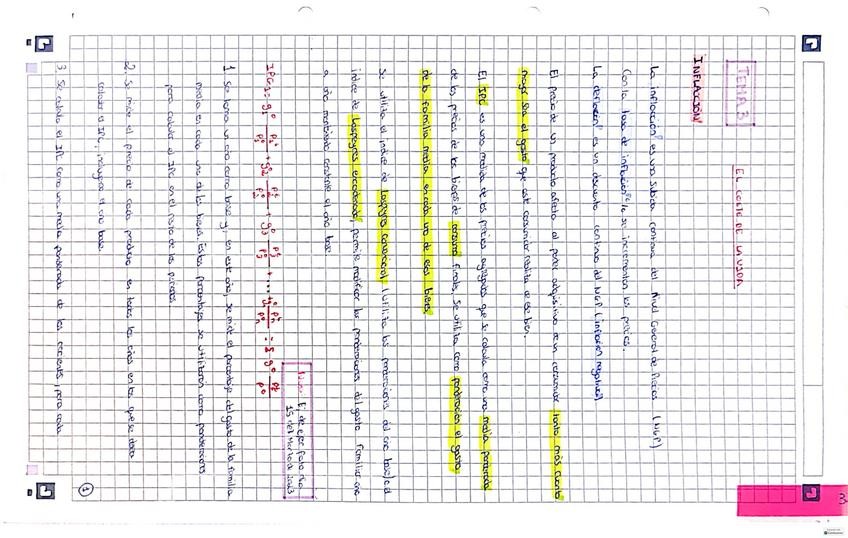 3
TEMA 3
EL COSTE DE LA VIDA
INFLACCIÓN
La inflacción es una subida continua del Nivel General de Precios (NGP)
Con la tasa de inflación se incrementan los precios.
La deflación es un descuento continuo del NGP (inflación negativa)
El precio de un producto afecta al poder adquisitivo de un consumidor tanto más cuanto
mayor sea el gasto que este consumidor realiza de ese bien.
El IPC es una medida de los precios agregados que se calcula como una media ponderada
de los precios de los bienes de consumo finales. Se utiliza como ponderación el gasto
de la familia media en cada uno de esos bienes.
Se utiliza el índice de Laspeyres (utiliza las ponderaciones del año base)
índice de Laspeyres encadenado, permite modificar las ponderaciones del gasto familiar
a año manteniendo constante el año base.
Ej de ejercicio
15 del Manual 2023
1. Se toma un año como base y, en este año, se mide el porcentaje del gasto de la familia
media en cada uno de los bienes. Estos porcentajes se utilizarán como ponderaciones
para calcular el IPC en el resto de los periodos.
2. Se mide el precio de cada producto en todos los años en los que se desea
calcular el IPC, incluyendo el año base.
3. Se calcula el IPC como una media ponderada de los cocientes, para cada
1